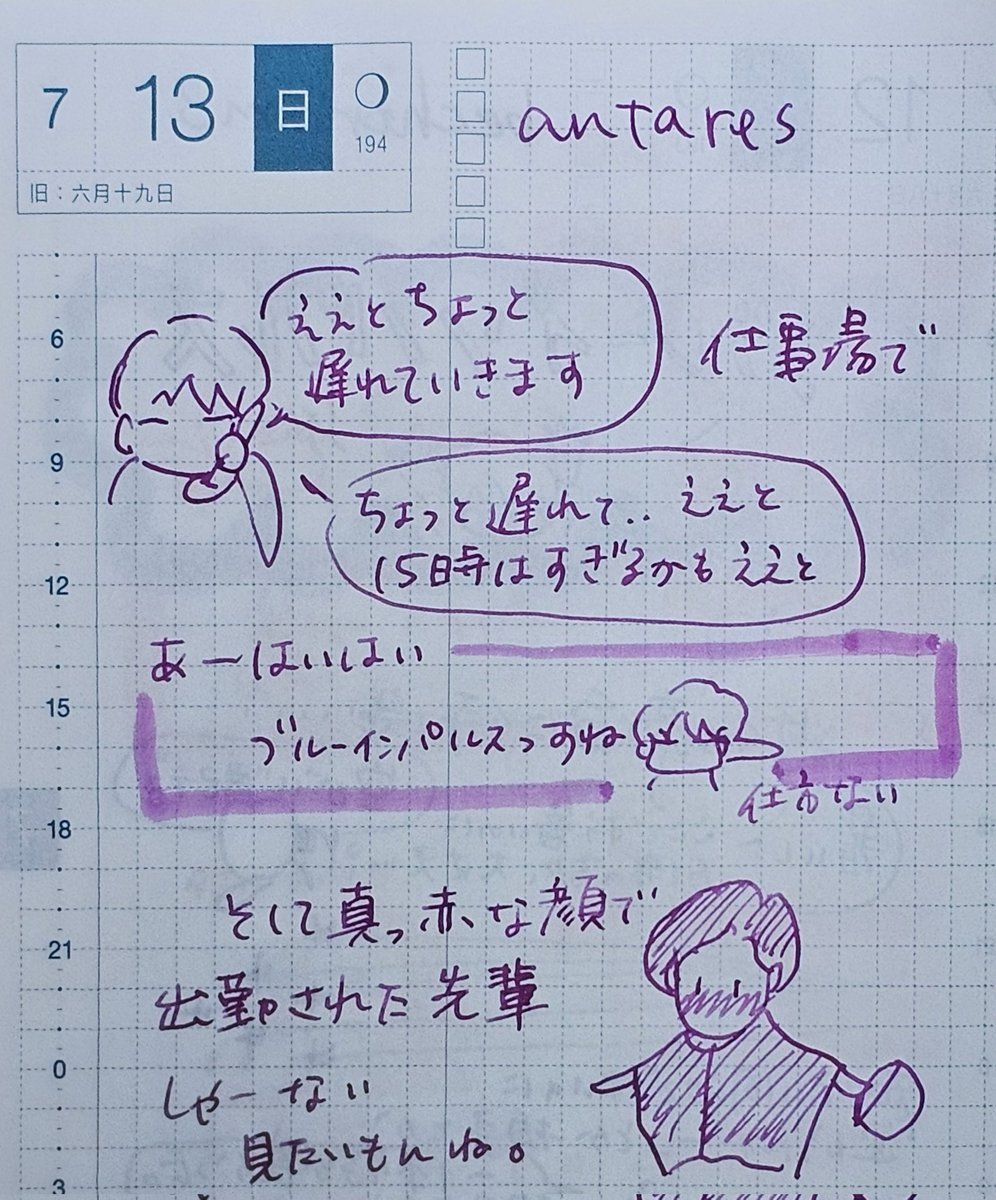 7 13 日 194
旧：六月十九日
antares
仕事場で
ええとちょっと
遅れていきます
ちょっと遅れて.. ええと
15時はすぎるかもええと
あーはいはい
ブルーインパルスっすね
仕方ない
そして真っ赤な顔で
出勤された先輩
しゃーない
見たいもんね。
6
9
12
15
18
21
0
3